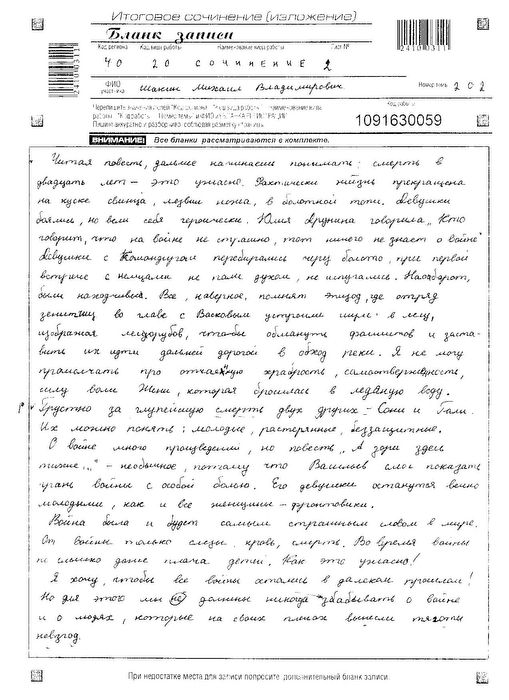 Итоговое сочинение (изложение)
Бланк записи
Код региона Код вида работы Наименование вида работы Лист №
40 20 СОЧИНЕНИЕ 2
24100311
24100311
ФИО участника Шакин Михаил Владимирович Номер темы 202
Код работы
1091630059
ВНИМАНИЕ! Все бланки рассматриваются в комплекте.
Читая повесть, дальше начинаешь понимать: смерть в
двадцать лет – это ужасно. Фактически жизнь прекращена
на куске свинца, лезвии ножа, в болотной топи. Девушки
боялись, но вели себя героически. Юлия Друнина говорила „Кто
говорит, что на войне не страшно, тот ничего не знает о войне"
Девушки с Командиром перебирались через болото, при первой
встрече с немцами не пали духом, не испугались. Наоборот,
были находчивые. Все, наверное, помнят эпизод, где отряд
зенитчиц во главе с Васковым устроили шум в лесу,
изображая лесорубов, чтобы обмануть фашистов и заста-
вить их идти дальней дорогой в обход реки. Я не могу
промолчать про отчаянную храбрость, самоотверженность,
силу воли Жени, которая бросилась в ледяную воду.
Грустно за глупейшую смерть двух других – Сони и Гали.
Их можно понять: молодые, растерянные, беззащитные.
О войне много произведений, но повесть „А зори здесь
тихие..." – необычное, потому что Васильев смог показать
грань войны с особой болью. Его девушки останутся вечно
молодыми, как и все женщины – фронтовики.
Война была и будет самым страшным словом в мире.
От войны только слезы, кровь, смерть. Во время войны
не слышно даже плача детей. Как это ужасно!
Я хочу, чтобы все войны остались в далеком прошлом!
Но для этого мы не должны никогда забывать о войне
и о людях, которые на своих плечах вынесли тяготы
невзгод.
При недостатке места для записи попросите дополнительный бланк записи.